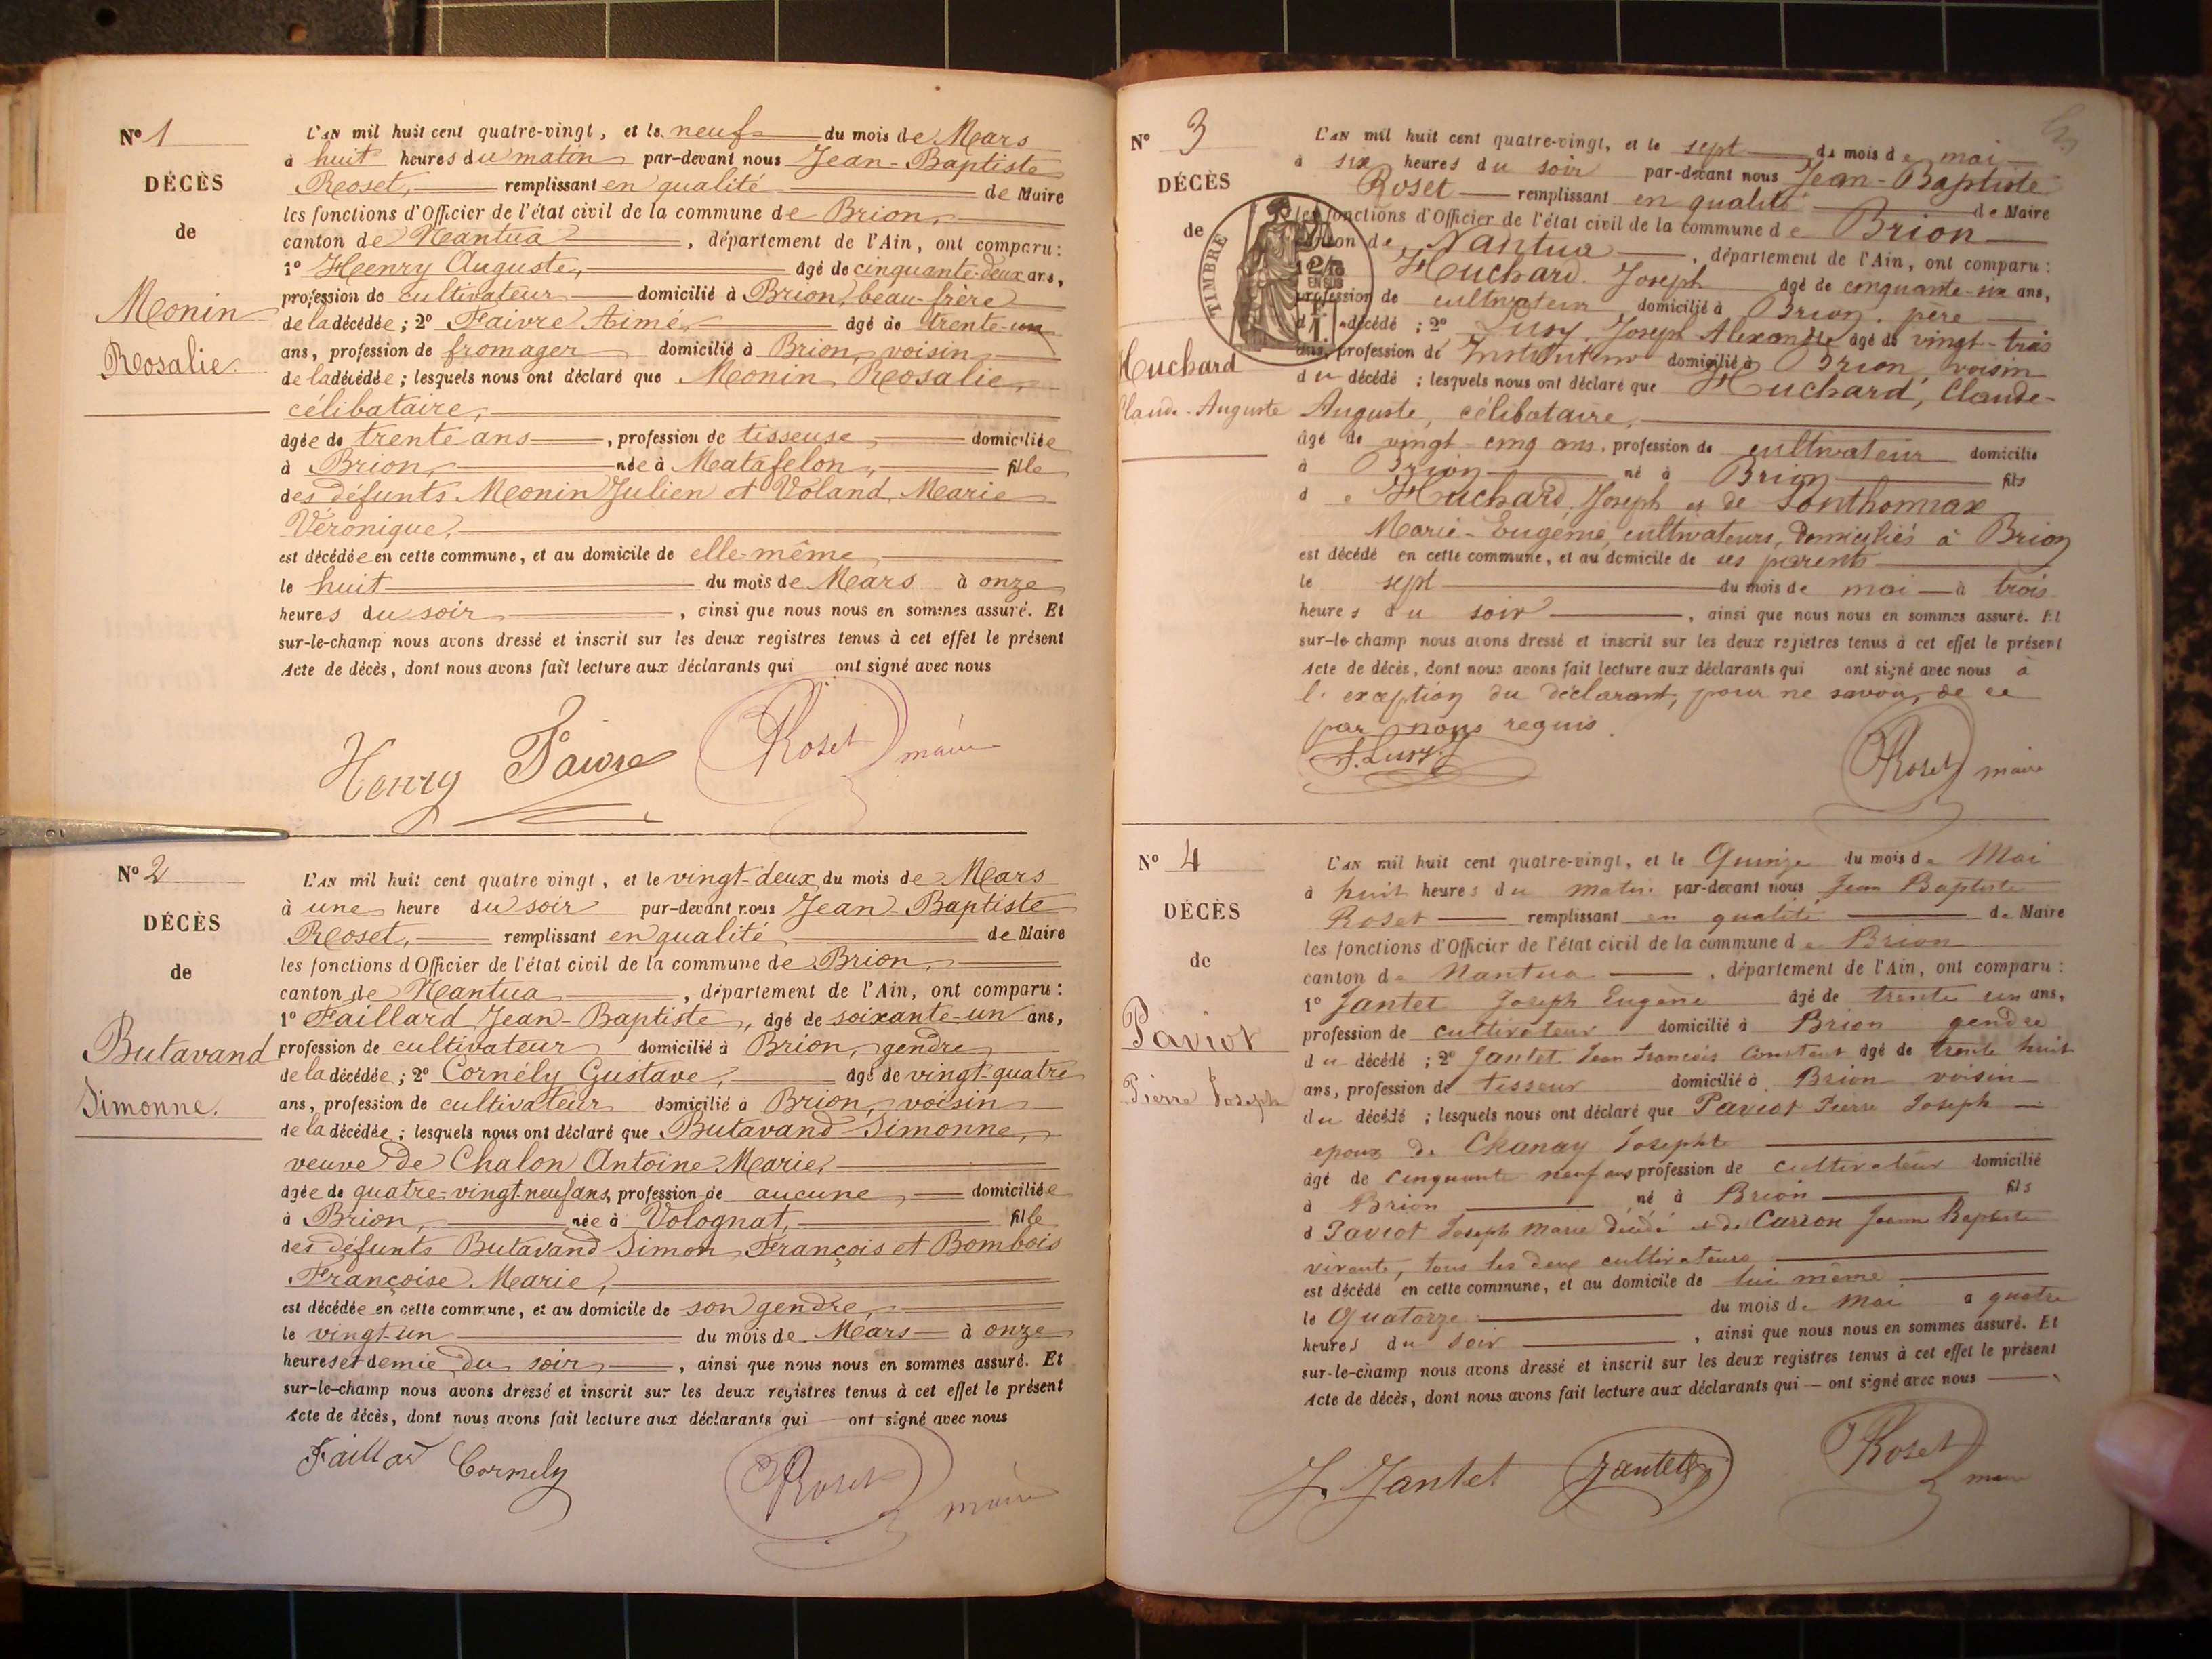 Nº 1
DÉCÈS
de
Monin
Rosalie.
L'AN mil huit cent quatre-vingt, et le neuf du mois de Mars
à huit heures du matin par-devant nous Jean-Baptiste
Roset, remplissant en qualité de Maire
les fonctions d'Officier de l'état civil de la commune de Brion,
canton de Nantua, département de l'Ain, ont comparu :
1º Henry Auguste, âgé de cinquante-deux ans,
profession de cultivateur domicilié à Brion, beau-frère
de la décédée ; 2º Faivre Aimé, âgé de trente-un
ans, profession de fromager domicilié à Brion, voisin
de la décédée ; lesquels nous ont déclaré que Monin Rosalie,
célibataire,
âgée de trente ans, profession de tisseuse, domiciliée
à Brion, née à Matafelon, fille
des défunts Monin Julien et Voland Marie
Véronique,
est décédée en cette commune, et au domicile de elle-même
le huit du mois de Mars à onze
heures du soir, ainsi que nous nous en sommes assuré. Et
sur-le-champ nous avons dressé et inscrit sur les deux registres tenus à cet effet le présent
Acte de décès, dont nous avons fait lecture aux déclarants qui ont signé avec nous
Henry Faivre Roset maire
Nº 2
DÉCÈS
de
Butavand
Simonne.
L'AN mil huit cent quatre vingt, et le vingt-deux du mois de Mars
à une heure du soir par-devant nous Jean-Baptiste
Roset, remplissant en qualité de Maire
les fonctions d'Officier de l'état civil de la commune de Brion,
canton de Nantua, département de l'Ain, ont comparu :
1º Faillard Jean-Baptiste, âgé de soixante-un ans,
profession de cultivateur domicilié à Brion, gendre
de la décédée ; 2º Cornély Gustave, âgé de vingt-quatre
ans, profession de cultivateur domicilié à Brion, voisin
de la décédée ; lesquels nous ont déclaré que Butavand Simonne,
veuve de Chalon Antoine Marie,
âgée de quatre-vingt-neuf ans, profession de aucune, domiciliée
à Brion, née à Volognat, fille
des défunts Butavand Simon François et Bombois
Françoise Marie,
est décédée en cette commune, et au domicile de son gendre,
le vingt-un du mois de Mars à onze
heures et demie du soir, ainsi que nous nous en sommes assuré. Et
sur-le-champ nous avons dressé et inscrit sur les deux registres tenus à cet effet le présent
Acte de décès, dont nous avons fait lecture aux déclarants qui ont signé avec nous
Faillard Cornely Roset maire
Nº 3
DÉCÈS
de
TIMBRE
Huchard
Claude-Auguste
L'AN mil huit cent quatre-vingt, et le sept du mois de mai
à six heures du soir par-devant nous Jean-Baptiste
Roset remplissant en qualité de Maire
les fonctions d'Officier de l'état civil de la commune de Brion
canton de Nantua, département de l'Ain, ont comparu :
Huchard Joseph âgé de cinquante-six ans,
profession de cultivateur domicilié à Brion, père
du décédé ; 2º Lusy Joseph Alexandre âgé de vingt-trois
ans, profession de Instituteur domicilié à Brion voisin
du décédé ; lesquels nous ont déclaré que Huchard, Claude-
Auguste, célibataire,
âgé de vingt-cinq ans, profession de cultivateur domicilié
à Brion né à Brion fils
de Huchard Joseph et de Sonthonnax
Marie-Eugénie, cultivateurs, domiciliés à Brion
est décédé en cette commune, et au domicile de ses parents
le sept du mois de mai à trois
heures du soir, ainsi que nous nous en sommes assuré. Et
sur-le-champ nous avons dressé et inscrit sur les deux registres tenus à cet effet le présent
Acte de décès, dont nous avons fait lecture aux déclarants qui ont signé avec nous à
l'exception du déclarant, pour ne savoir, de ce
par nous requis.
J. Lusy Roset maire
Nº 4
DÉCÈS
de
Paviot
Pierre Joseph
L'AN mil huit cent quatre-vingt, et le Quinze du mois de Mai
à huit heures du matin par-devant nous Jean Baptiste
Roset remplissant en qualité de Maire
les fonctions d'Officier de l'état civil de la commune de Brion
canton de Nantua, département de l'Ain, ont comparu :
1º Jantet Joseph Eugène âgé de trente un ans,
profession de cultivateur domicilié à Brion gendre
du décédé ; 2º Jantet Jean François Constant âgé de trente huit
ans, profession de tisseur domicilié à Brion voisin
du décédé ; lesquels nous ont déclaré que Paviot Pierre Joseph
epoux de Chanay Josephte
âgé de Cinquante neuf ans profession de cultivateur domicilié
à Brion né à Brion fils
d Paviot Joseph Marie décédé et de Carron Jeanne Baptiste
vivante, tous les deux cultivateurs
est décédé en cette commune, et au domicile de lui même
le Quatorze du mois de Mai à quatre
heures du soir, ainsi que nous nous en sommes assuré. Et
sur-le-champ nous avons dressé et inscrit sur les deux registres tenus à cet effet le présent
Acte de décès, dont nous avons fait lecture aux déclarants qui — ont signé avec nous
J. Jantet Jantet Roset maire